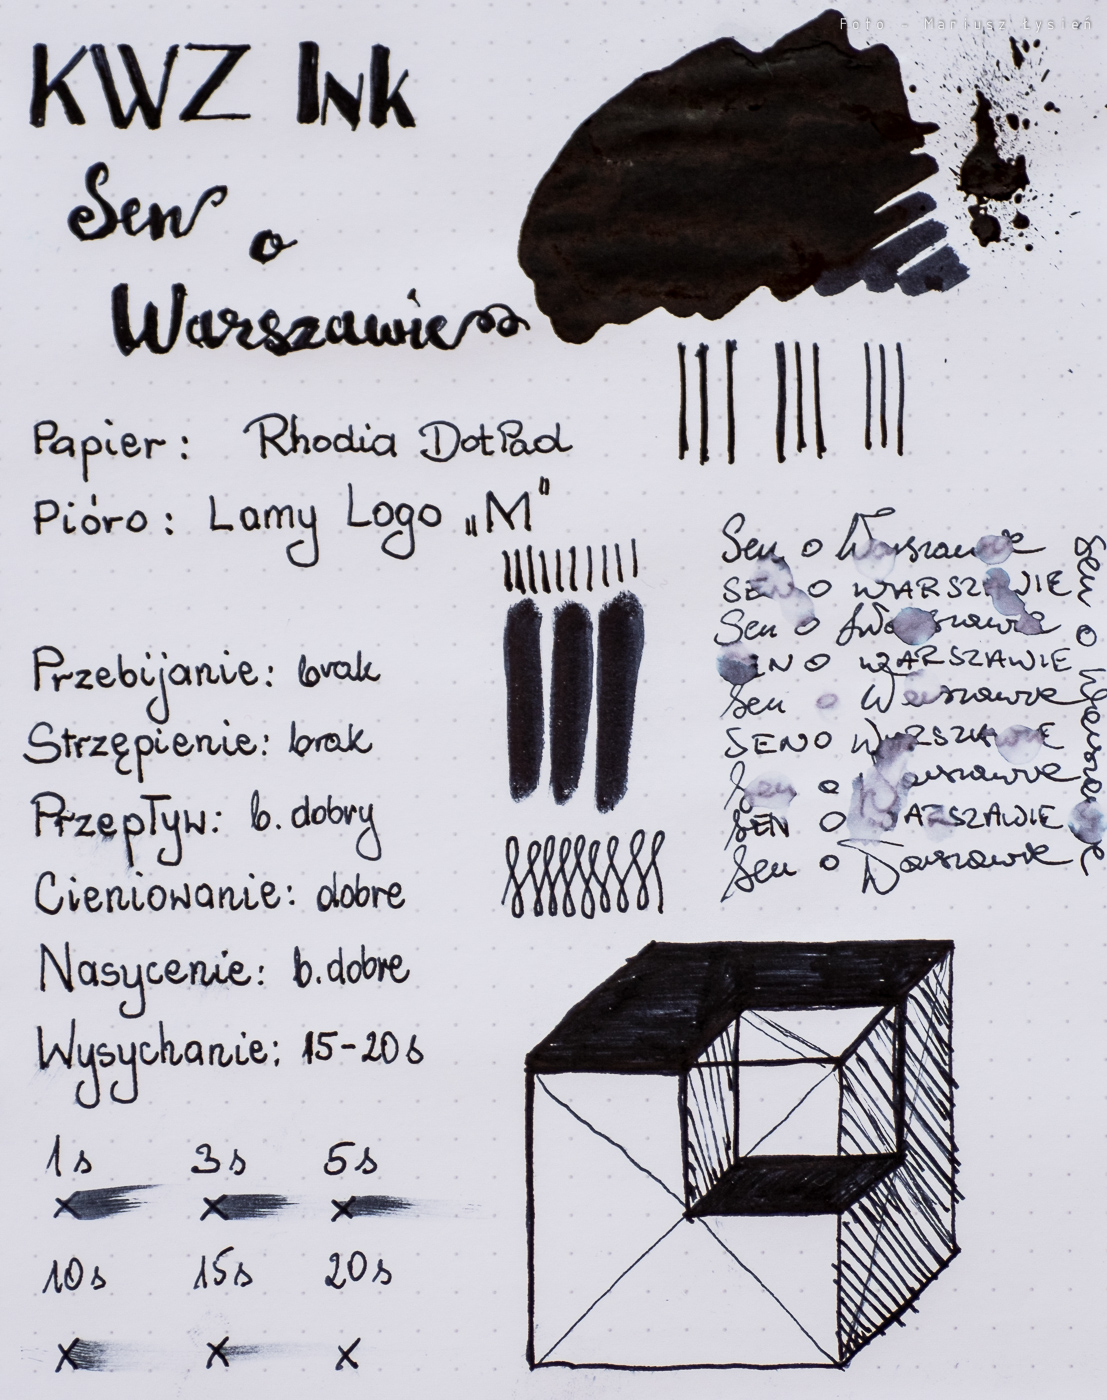 Foto - Mariusz Łysień
KWZ Ink
Sen
o
Warszawie
Papier: Rhodia DotPad
Pióro: Lamy Logo „M"
Przebijanie: brak
Strzępienie: brak
Przepływ: b. dobry
Cieniowanie: dobre
Nasycenie: b. dobre
Wysychanie: 15-20s
1s 3s 5s
x x x
10s 15s 20s
x x x
Sen o Warszawie
SEN O WARSZAWIE
Sen o Warszawie
SEN O WARSZAWIE
Sen o Warszawie
SEN O WARSZAWIE
Sen o Warszawie
SEN O WARSZAWIE
Sen o Warszawie
Sen o Warszawie